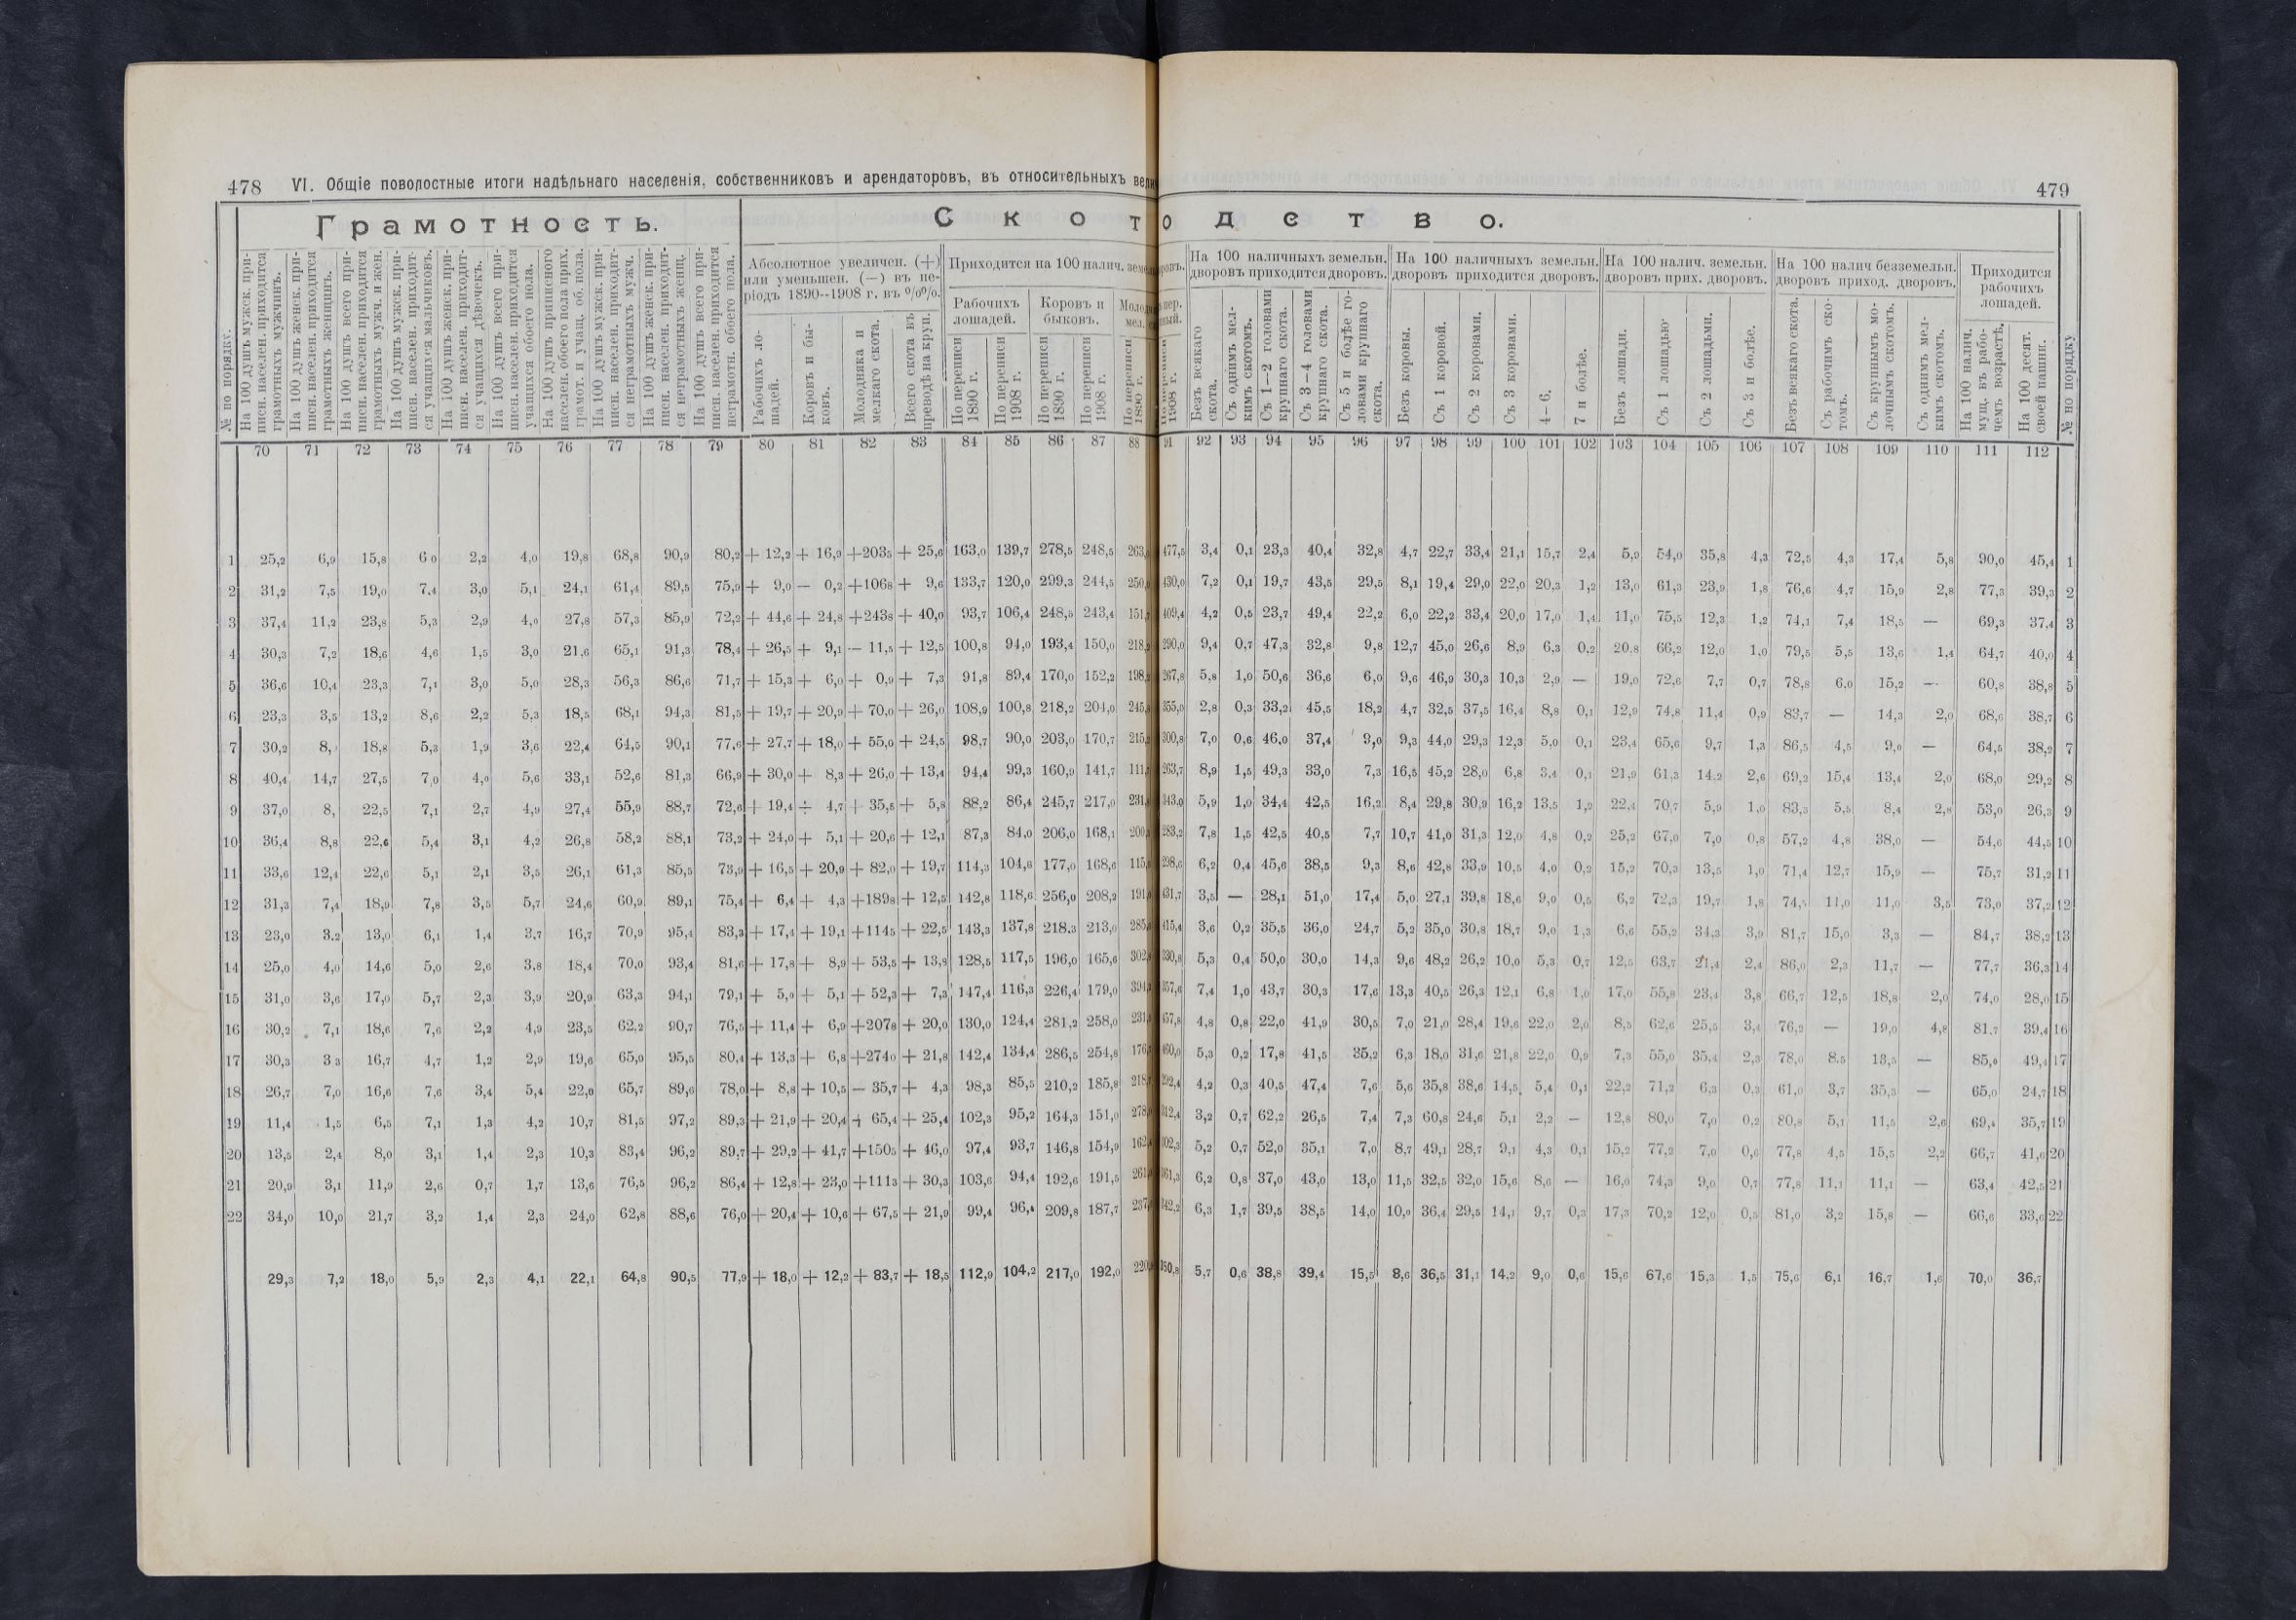 478 VI. Общіе поволостные итоги надѣльнаго населенія, собственниковъ и арендаторовъ, въ относительныхъ 479
Грамотность. Скотоводство.
№ по порядку.
На 100 душъ мужск. приписн. населен. приходится грамотныхъ мужчинъ.
На 100 душъ женск. приписн. населен. приходится грамотныхъ женщинъ.
На 100 душъ всего приписн. населен. приходится грамотныхъ мужч. и жен.
На 100 душъ мужск. приписн. населен. приходится учащихся мальчиковъ.
На 100 душъ женск. приписн. населен. приходится учащихся дѣвочекъ.
На 100 душъ всего приписн. населен. приходится учащихся обоего пола.
На 100 душъ приписного населен. обоего пола прих. грамот. и учащ. об. пола.
На 100 душъ мужск. приписн. населен. приходится неграмотныхъ мужч.
На 100 душъ женск. приписн. населен. приходится неграмотныхъ женщ.
На 100 душъ всего приписн. населен. приходится неграмотн. обоего пола.
Абсолютное увеличен. (+) или уменьшен. (—) въ періодъ 1890--1908 г. въ %%.
Рабочихъ лошадей.
Коровъ и быковъ.
Молодняка и мелкаго скота.
Всего скота въ переводѣ на круп.
Приходится на 100 налич.
Рабочихъ лошадей.
По переписи 1890 г.
По переписи 1908 г.
Коровъ и быковъ.
По переписи 1890 г.
По переписи 1908 г.
По переписи 1890 г.
1908 г.
На 100 наличныхъ земельн. дворовъ приходится дворовъ.
Безъ всякаго скота.
Съ однимъ мелкимъ скотомъ.
Съ 1—2 головами крупнаго скота.
Съ 3—4 головами крупнаго скота.
Съ 5 и болѣе головами крупнаго скота.
На 100 наличныхъ земельн. дворовъ приходится дворовъ.
Безъ коровы.
Съ 1 коровой.
Съ 2 коровами.
Съ 3 коровами.
4—6.
7 и болѣе.
На 100 налич. земельн. дворовъ прих. дворовъ.
Безъ лошади.
Съ 1 лошадью
Съ 2 лошадьми.
Съ 3 и болѣе.
На 100 налич безземельн. дворовъ приход. дворовъ.
Безъ всякаго скота.
Съ рабочимъ скотомъ.
Съ крупнымъ молочнымъ скотомъ.
Съ однимъ мелкимъ скотомъ.
Приходится рабочихъ лошадей.
На 100 налич. мущ. въ рабочемъ возрастѣ.
На 100 десят. своей пашни.
№ по порядку
70 71 72 73 74 75 76 77 78 79 80 81 82 83 84 85 86 87 88 91 92 93 94 95 96 97 98 99 100 101 102 103 104 105 106 107 108 109 110 111 112
1 25,2 6,9 15,8 6 0 2,2 4,0 19,8 68,8 90,9 80,2 + 12,2 + 16,9 +203,5 + 25,6 163,0 139,7 278,5 248,5 477,5 3,4 0,1 23,3 40,4 32,8 4,7 22,7 33,4 21,1 15,7 2,4 5,9 54,0 35,8 4,3 72,5 4,3 17,4 5,8 90,0 45,4 1
2 31,2 7,5 19,0 7,4 3,0 5,1 24,1 61,4 89,5 75,9 + 9,0 — 0,2 +106,8 + 9,6 133,7 120,0 299,3 244,5 430,0 7,2 0,1 19,7 43,5 29,5 8,1 19,4 29,0 22,0 20,3 1,2 13,0 61,3 23,9 1,8 76,6 4,7 15,9 2,8 77,3 39,3 2
3 37,4 11,2 23,8 5,3 2,9 4,0 27,8 57,3 85,9 72,2 + 44,6 + 24,8 +243,8 + 40,0 93,7 106,4 248,5 243,4 409,4 4,2 0,5 23,7 49,4 22,2 6,0 22,2 33,4 20,0 17,0 1,4 11,0 75,5 12,3 1,2 74,1 7,4 18,5 — 69,3 37,4 3
4 30,3 7,2 18,6 4,6 1,5 3,0 21,6 65,1 91,3 78,4 + 26,5 + 9,1 — 11,5 + 12,5 100,8 94,0 193,4 150,0 290,0 9,4 0,7 47,3 32,8 9,8 12,7 45,0 26,6 8,9 6,3 0,2 20,8 66,2 12,0 1,0 79,5 5,5 13,6 1,4 64,7 40,0 4
5 36,6 10,4 23,3 7,1 3,0 5,0 28,3 56,3 86,6 71,7 + 15,3 + 6,0 + 0,9 + 7,3 91,8 89,4 170,0 152,2 267,8 5,8 1,0 50,6 36,6 6,0 9,6 46,9 30,3 10,3 2,9 — 19,0 72,6 7,7 0,7 78,8 6,0 15,2 — 60,8 38,8 5
6 23,3 3,5 13,2 8,6 2,2 5,3 18,5 68,1 94,3 81,5 + 19,7 + 20,9 + 70,0 + 26,0 108,9 100,8 218,2 204,0 355,0 2,8 0,3 33,2 45,5 18,2 4,7 32,5 37,5 16,4 8,8 0,1 12,9 74,8 11,4 0,9 83,7 — 14,3 2,0 68,6 38,7 6
7 30,2 8, 18,8 5,3 1,9 3,6 22,4 64,5 90,1 77,6 + 27,7 + 18,0 + 55,0 + 24,5 98,7 90,0 203,0 170,7 300,8 7,0 0,6 46,0 37,4 9,0 9,3 44,0 29,3 12,3 5,0 0,1 23,4 65,6 9,7 1,3 86,5 4,5 9,0 — 64,5 38,2 7
8 40,4 14,7 27,5 7,0 4,0 5,6 33,1 52,6 81,3 66,9 + 30,0 + 8,3 + 26,0 + 13,4 94,4 99,3 160,9 141,7 263,7 8,9 1,5 49,3 33,0 7,3 16,5 45,2 28,0 6,8 3,4 0,1 21,9 61,3 14,2 2,6 69,2 15,4 13,4 2,0 68,0 29,2 8
9 37,0 8, 22,5 7,1 2,7 4,9 27,4 55,9 88,7 72,6 + 19,4 + 4,7 + 35,5 + 5,8 88,2 86,4 245,7 217,0 343,0 5,9 1,0 34,4 42,5 16,2 8,4 29,8 30,9 16,2 13,5 1,2 22,4 70,7 5,9 1,0 83,3 5,5 8,4 2,8 53,0 26,3 9
10 36,4 8,8 22,6 5,4 3,1 4,2 26,8 58,2 88,1 73,2 + 24,0 + 5,1 + 20,6 + 12,1 87,3 84,0 206,0 168,1 283,2 7,8 1,5 42,5 40,5 7,7 10,7 41,0 31,3 12,0 4,8 0,2 25,2 67,0 7,0 0,8 57,2 4,8 38,0 — 54,6 44,5 10
11 33,6 12,4 22,6 5,1 2,1 3,5 26,1 61,3 85,5 73,9 + 16,5 + 20,9 + 82,0 + 19,7 114,3 104,6 177,0 168,6 298,6 6,2 0,4 45,6 38,5 9,3 8,6 42,8 33,9 10,5 4,0 0,2 15,2 70,3 13,5 1,0 71,4 12,7 15,9 — 75,7 31,2 11
12 31,3 7,4 18,9 7,8 3,5 5,7 24,6 60,9 89,1 75,4 + 6,4 + 4,3 +189,8 + 12,5 142,8 118,6 256,0 208,2 431,7 3,5 — 28,1 51,0 17,4 5,0 27,1 39,8 18,6 9,0 0,5 6,2 72,3 19,7 1,8 74,5 11,0 11,0 3,5 73,0 37,2 12
13 23,0 3,2 13,0 6,1 1,4 3,7 16,7 70,9 95,4 83,3 + 17,4 + 19,1 +114,5 + 22,5 143,3 137,8 218,3 213,0 415,4 3,6 0,2 35,5 36,0 24,7 5,2 35,0 30,8 18,7 9,0 1,3 6,6 55,2 34,3 3,9 81,7 15,0 3,3 — 84,7 38,2 13
14 25,0 4,0 14,6 5,0 2,6 3,8 18,4 70,0 93,4 81,6 + 17,8 + 8,9 + 53,5 + 13,8 128,5 117,5 196,0 165,6 330,8 5,3 0,4 50,0 30,0 14,3 9,6 48,2 26,2 10,0 5,3 0,7 12,5 63,7 21,4 2,4 86,0 2,3 11,7 — 77,7 36,3 14
15 31,0 3,6 17,0 5,7 2,3 3,9 20,9 63,3 94,1 79,1 + 5,0 + 5,1 + 52,3 + 7,3 147,4 116,3 226,4 179,0 357,6 7,4 1,0 43,7 30,3 17,6 13,3 40,5 26,3 12,1 6,8 1,0 17,0 55,8 23,4 3,8 66,7 12,5 18,8 2,0 74,0 28,0 15
16 30,2 7,1 18,6 7,6 2,2 4,9 23,5 62,2 90,7 76,5 + 11,4 + 6,9 +207,8 + 20,0 130,0 124,4 281,2 258,0 457,8 4,8 0,8 22,0 41,9 30,5 7,0 21,0 28,4 19,6 22,0 2,0 8,5 62,6 25,5 3,4 76,2 — 19,0 4,8 81,7 39,4 16
17 30,3 3 3 16,7 4,7 1,2 2,9 19,6 65,9 95,5 80,4 + 13,3 + 6,8 +274,0 + 21,8 142,4 134,4 286,5 254,8 460,0 5,3 0,2 17,8 41,5 35,2 6,3 18,0 31,6 21,8 22,0 0,9 7,3 55,0 35,4 2,3 78,0 8,5 13,5 — 85,0 49,4 17
18 26,7 7,0 16,6 7,6 3,4 5,4 22,0 65,7 89,6 78,0 + 8,8 + 10,5 — 35,7 + 4,3 98,3 85,5 210,2 185,8 292,4 4,2 0,3 40,5 47,4 7,6 5,6 35,8 38,6 14,5 5,4 0,1 22,2 71,2 6,3 0,3 61,0 3,7 35,3 — 65,0 24,7 18
19 11,4 1,5 6,5 7,1 1,3 4,2 10,7 81,5 97,2 89,3 + 21,9 + 20,4 + 65,4 + 25,4 102,3 95,2 164,3 151,0 312,4 3,2 0,7 62,2 26,5 7,4 7,3 60,8 24,6 5,1 2,2 — 12,8 80,0 7,0 0,2 80,8 5,1 11,5 2,6 69,4 35,7 19
20 13,5 2,4 8,0 3,1 1,4 2,3 10,3 83,4 96,2 89,7 + 29,2 + 41,7 +150,5 + 46,0 97,4 93,7 146,8 154,9 302,3 5,2 0,7 52,0 35,1 7,0 8,7 49,1 28,7 9,1 4,3 0,1 15,2 77,2 7,0 0,6 77,8 4,5 15,5 2,2 66,7 41,6 20
21 20,9 3,1 11,9 2,6 0,7 1,7 13,6 76,5 96,2 86,4 + 12,8 + 23,0 +111,3 + 30,3 103,6 94,4 192,6 191,5 361,3 6,2 0,8 37,0 43,0 13,0 11,5 32,5 32,0 15,6 8,6 — 16,0 74,3 9,0 0,7 77,8 11,1 11,1 — 63,4 42,5 21
22 34,0 10,0 21,7 3,2 1,4 2,3 24,0 62,8 88,6 76,0 + 20,4 + 10,6 + 67,5 + 21,9 99,4 96,4 209,8 187,7 342,2 6,3 1,7 39,5 38,5 14,0 10,0 36,4 29,5 14,1 9,7 0,3 17,3 70,2 12,0 0,5 81,0 3,2 15,8 — 66,6 33,6 22
29,3 7,2 18,0 5,9 2,3 4,1 22,1 64,8 90,5 77,9 + 18,0 + 12,2 + 83,7 + 18,5 112,9 104,2 217,0 192,0 350,8 5,7 0,6 38,8 39,4 15,5 8,6 36,5 31,1 14,2 9,0 0,6 15,6 67,6 15,3 1,5 75,6 6,1 16,7 1,6 70,0 36,7